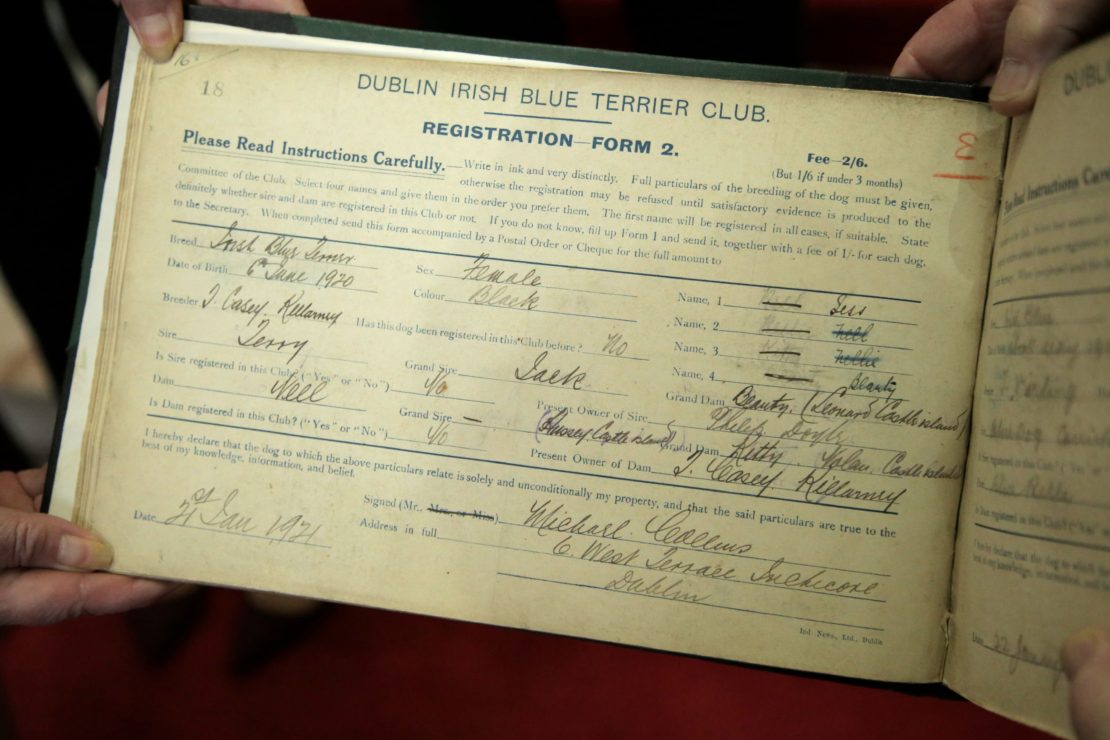 18
DUBLIN IRISH BLUE TERRIER CLUB.
REGISTRATION—FORM 2.
3
Fee—2/6.
(But 1/6 if under 3 months)
Please Read Instructions Carefully.—Write in ink and very distinctly. Full particulars of the breeding of the dog must be given,
otherwise the registration may be refused until satisfactory evidence is produced to the
Committee of the Club. Select four names and give them in the order you prefer them. The first name will be registered in all cases, if suitable. State
definitely whether sire and dam are registered in this Club or not. If you do not know, fill up Form 1 and send it, together with a fee of 1/- for each dog,
to the Secretary. When completed send this form accompanied by a Postal Order or Cheque for the full amount to
Breed Irish Blue Terrier Sex Female Name, 1 Jess
Date of Birth 6th June 1920 Colour Black Name, 2 Nell
Breeder J. Casey. Killarney Has this dog been registered in this Club before? No Name, 3 Nellie
Name, 4 Beauty
Sire Terry Grand Sire Jack Grand Dam Beauty. (Leonard Castleisland)
Is Sire registered in this Club? ("Yes" or "No") No Present Owner of Sire Philip Doyle
Dam Nell Grand Sire — (Hussey Castleisland) Grand Dam Kitty. Nolan. Castleisland
Is Dam registered in this Club? ("Yes" or "No") No Present Owner of Dam J. Casey. Killarney
I hereby declare that the dog to which the above particulars relate is solely and unconditionally my property, and that the said particulars are true to the
best of my knowledge, information, and belief.
Signed (Mr., Mrs., or Miss) Michael Collins
Date 21 Jan 1921 Address in full 6. West Terrace Inchicore
Dublin
Ind. News, Ltd., Dublin